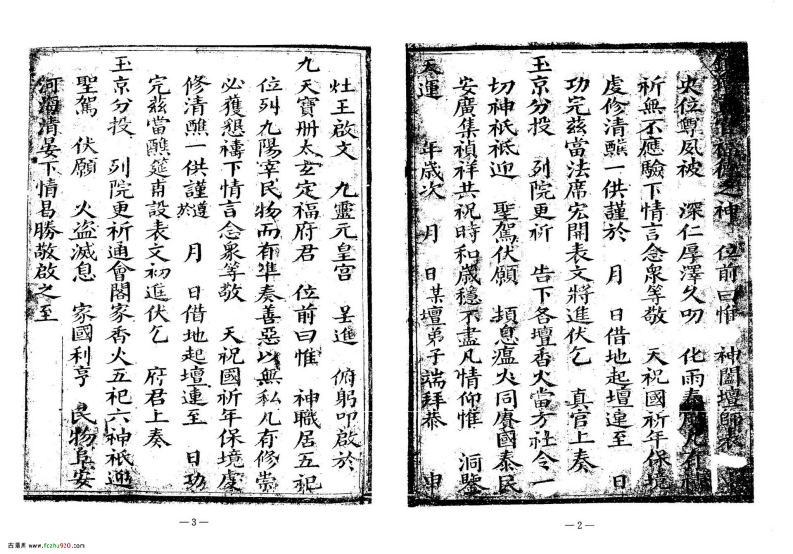 德之神　位前曰惟　神闔壇師表
史位尊風被　深仁厚澤久叨　化雨春凡有
祈無不應驗下情言念衆等敬　天祝國祈年保境
虔修清醮一供謹於　月　日借地起壇遑至　日
功完茲當法席宏開表文將進伏乞　真官上奏
玉京分投　列院更祈　告下各壇香火當方社令一
切神祇祗迎　聖駕伏願　頻息瘟火同賡國泰民
安廣集禎祥共祝時和歲穩不盡凡情仰惟　洞鑒
天運　年歲次　月　日某壇弟子端拜恭　申
—2—
灶王啟文　九靈元皇宫　呈進　俯躬叩啟於
九天寶册太玄定福府君　位前曰惟　神職居五祀
位列九陽宰民物而有準奏善惡以無私凡有修崇
必獲懇禱下情言念衆等敬　天祝國祈年保境虔
修清醮一供謹遵於　月　日借地起壇連至　日功
完茲當醮筵甫設表文初進伏乞　府君上奏
玉京分投　列院更祈通會閤家香火五祀六神祇迎
聖駕　伏願　火盗滅息　家國利亨　民物阜安
河海清晏下情曷勝敬啟之至
—3—
古籍库 www.fczhu920.com